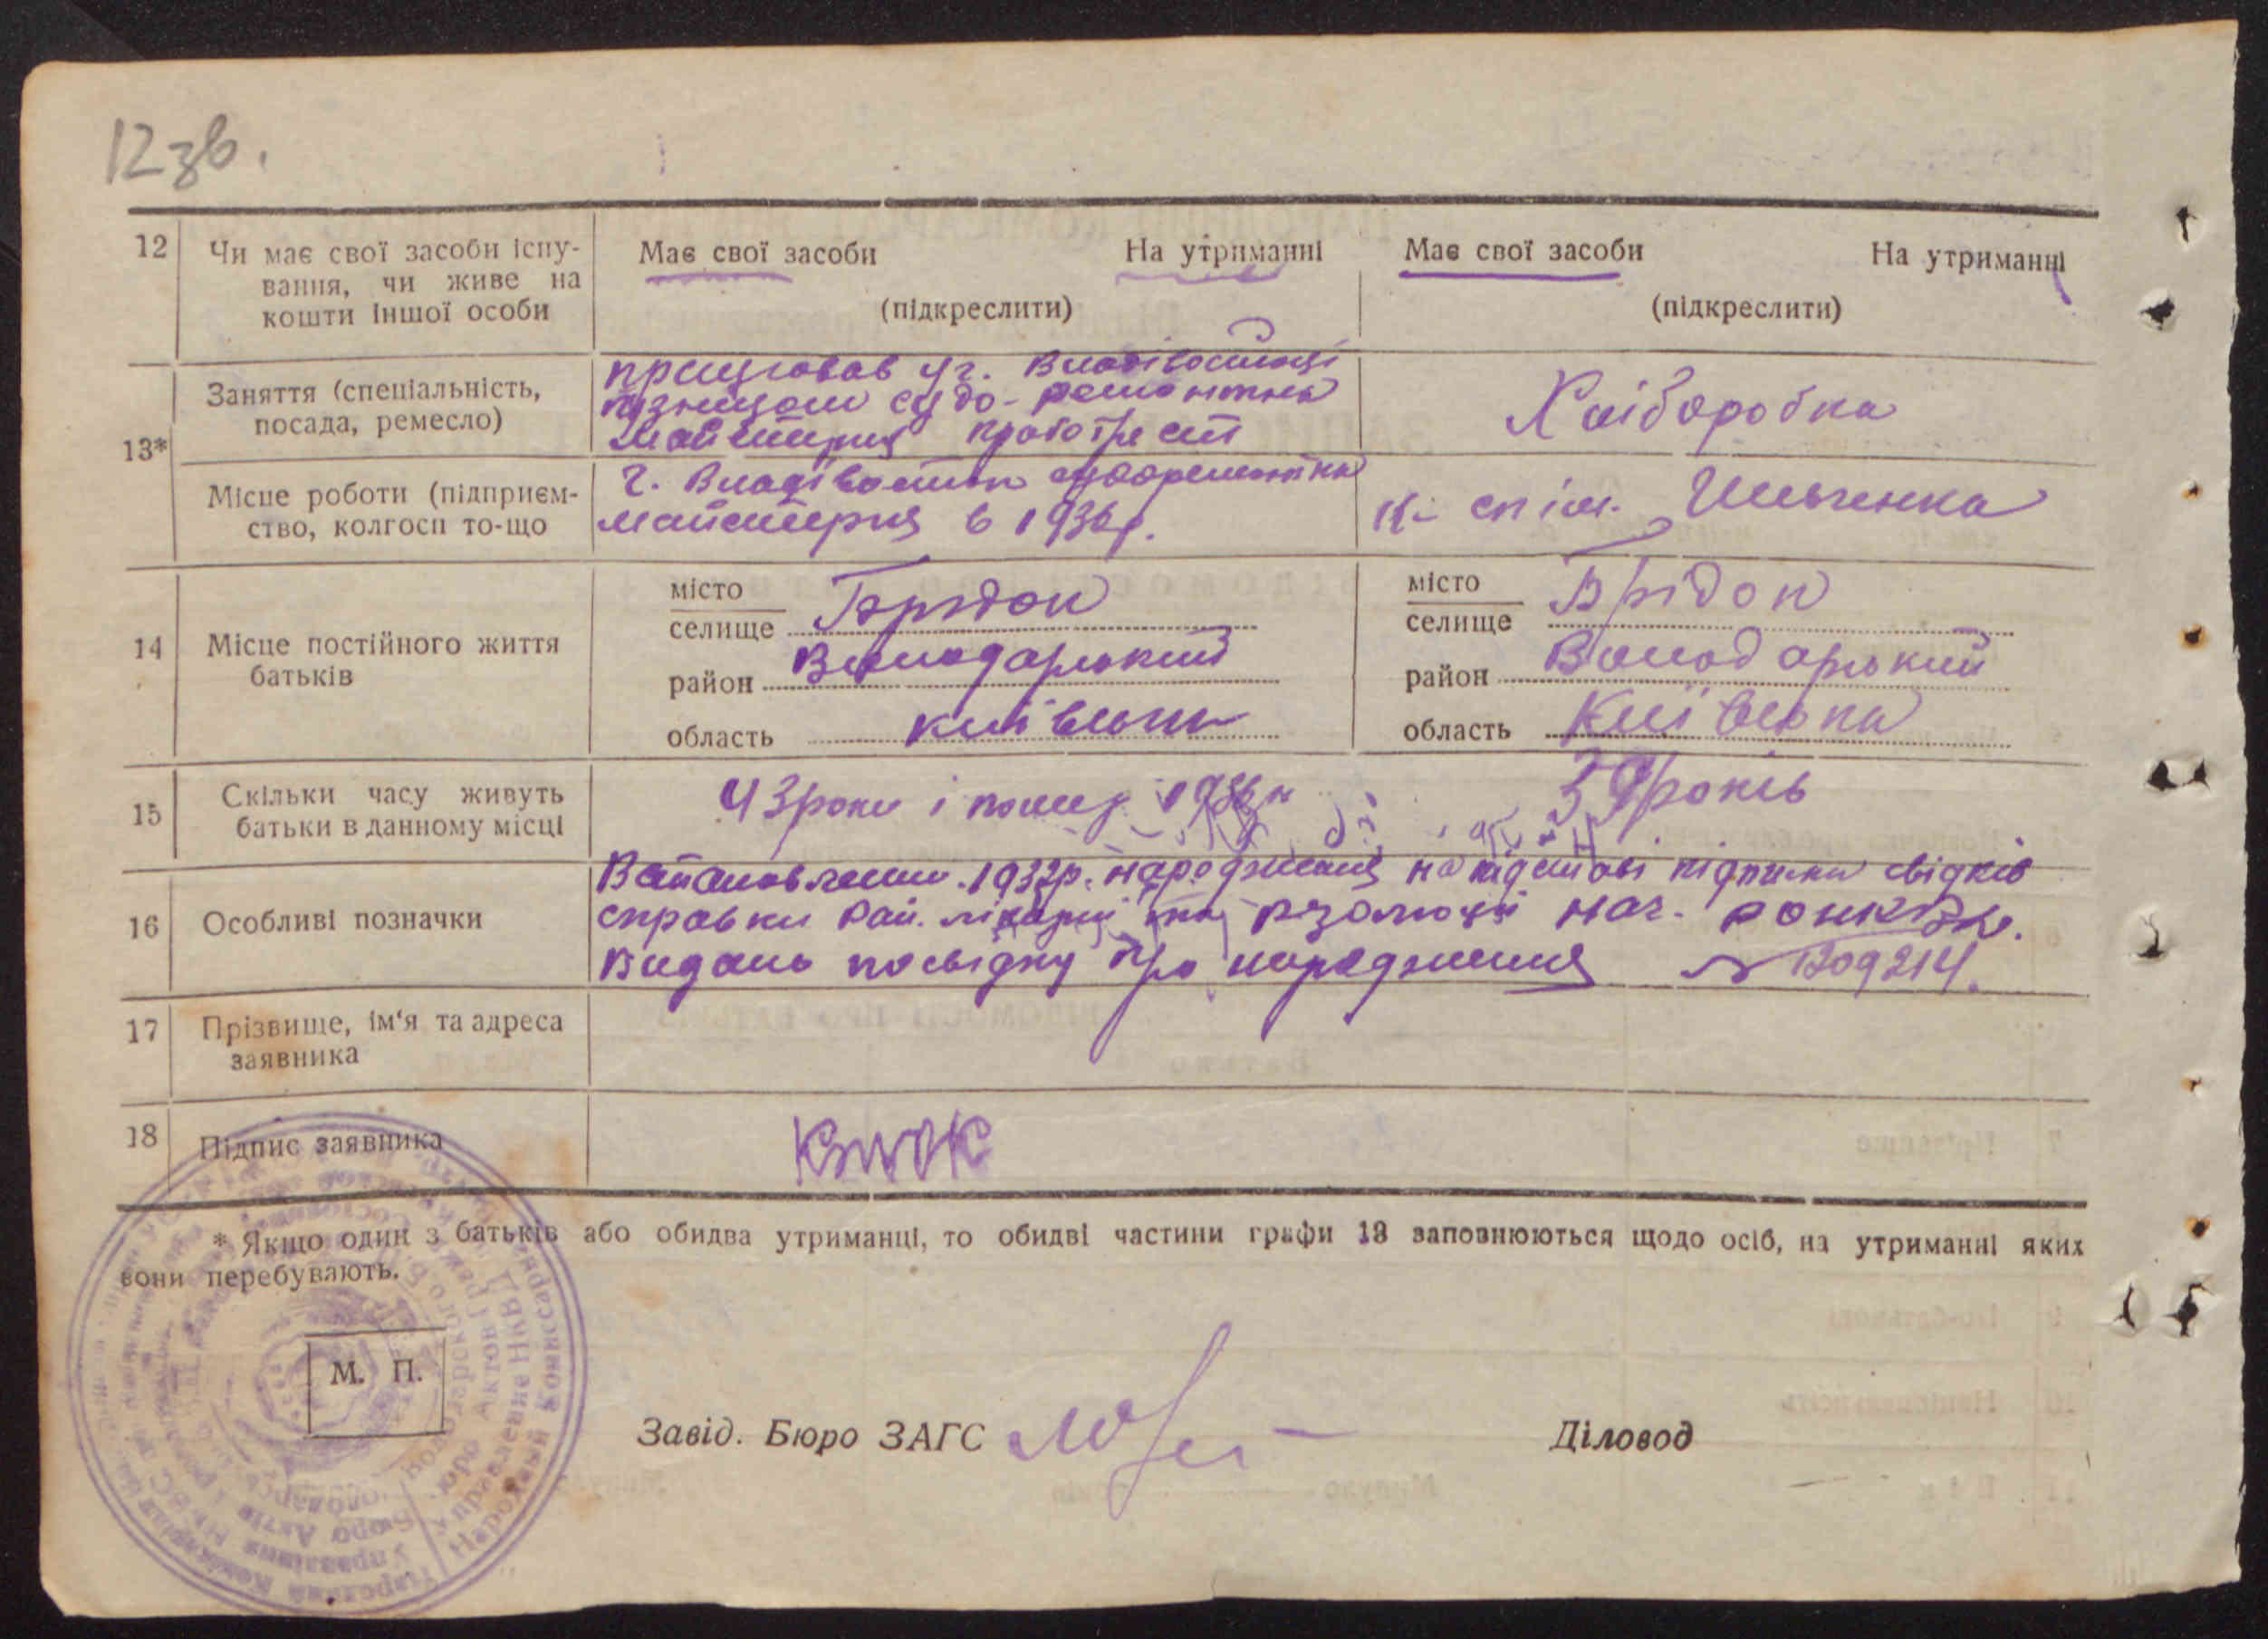 12 зв.
12 Чи має свої засоби існу-
вання, чи живе на
кошти іншої особи
Має свої засоби На утриманні
(підкреслити)
Має свої засоби На утриманні
(підкреслити)
13*
Заняття (спеціальність,
посада, ремесло)
працював у г. Владівостоці
судо-ремонтна
майстерня
Хліборобка
Місце роботи (підприєм-
ство, колгосп то-що
г. Владівосток судоремонтна
майстерня в 1936р.
к-сп ім. Шевченка
14 Місце постійного життя
батьків
місто
селище
район Володарський
область Київська
місто
селище Брідок
район Володарський
область Київська
15 Скільки часу живуть
батьки в данному місці
43 роки і помер
39 років
16 Особливі позначки
Встановлення 1932р. народження на підставі підписки свідків
справки Рай. лікарні та рзолюції нач.
Видань посвідку про народження № 209214.
17 Прізвище, ім'я та адреса
заявника
18 Підпис заявника
* Якщо один з батьків або обидва утриманці, то обидві частини графи 13 заповнюються щодо осіб, на утриманні яких
вони перебувають.
М. П.
Завід. Бюро ЗАГС
Діловод